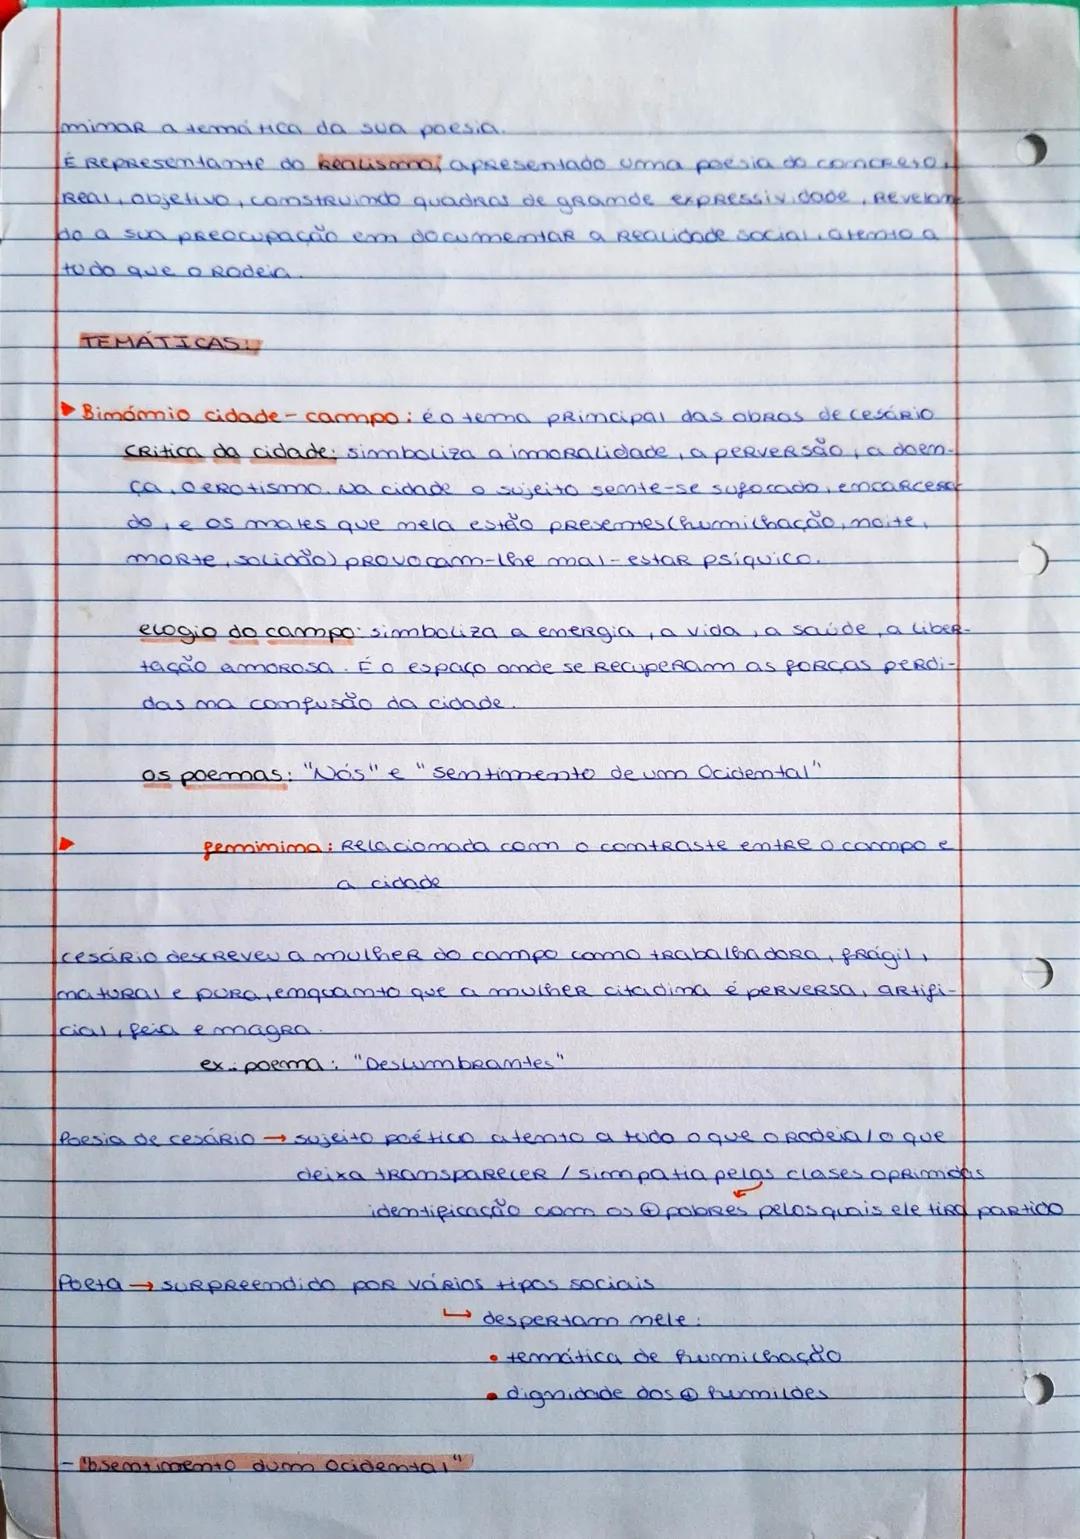 mimar a temática da sua poesia.
É Representante do Realismo, apresentado uma poesia do concreto,
Real, objetivo, construindo quadros de grande expressividade, Revelan
do a sua preocupação em documentar a Realidade social, atento a
tudo que o Rodeia.
TEMÁTICAS:
▶ Binómio cidade - campo: é o tema principal das obras de cesário
crítica da cidade: simboliza a imoralidade, a perversão, a doen-
ça, o erotismo. Na cidade o sujeito sente-se sufocado, encarcera
do, e os males que nela estão presentes (humilhação, noite,
morte, solidão) provocam-lhe mal-estar psíquico.
elogio do campo: simboliza a energia, a vida, a saúde, a liber-
tação amorosa. É o espaço onde se recuperam as forças perdi-
das na confusão da cidade.
os poemas: "Nós" e "sentimento de um Ocidental"
▶ feminina: Relacionada com o contraste entre o campo e
a cidade
cesário descreveu a mulher do campo como trabalhadora, frágil,
natural e pura, enquanto que a mulher citadina é perversa, artifi-
cial, feia e magra.
ex: poema: "Deslumbrantes"
Poesia de cesário → sujeito poético atento a tudo o que o rodeia/o que
deixa transparecer / simpatia pelas clases oprimidas
identificação com os ⊕ pobres pelos quais ele tira partido
Poeta → surpreendido por vários tipos sociais
↳ despertam nele:
• temática de humilhação
• dignidade dos ⊕ humildes
- "O sentimento dum Ocidental"